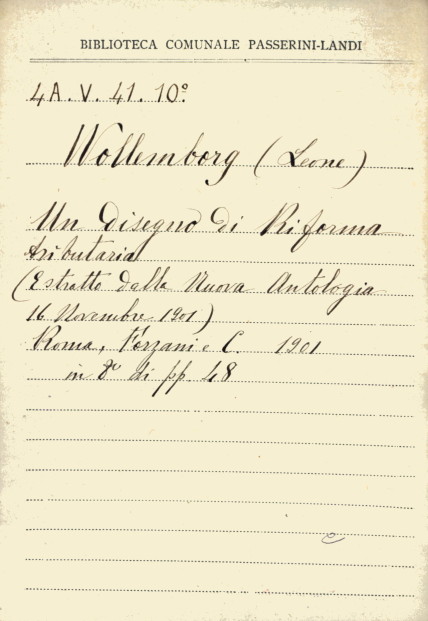 BIBLIOTECA COMUNALE PASSERINI-LANDI
4A. V. 41. 10º
Wollemborg (Leone)
Un disegno di Riforma
tributaria
(Estratto dalla Nuova Antologia
16 Novembre 1901)
Roma, Forzani e C. 1901
in 8º di pp. 48